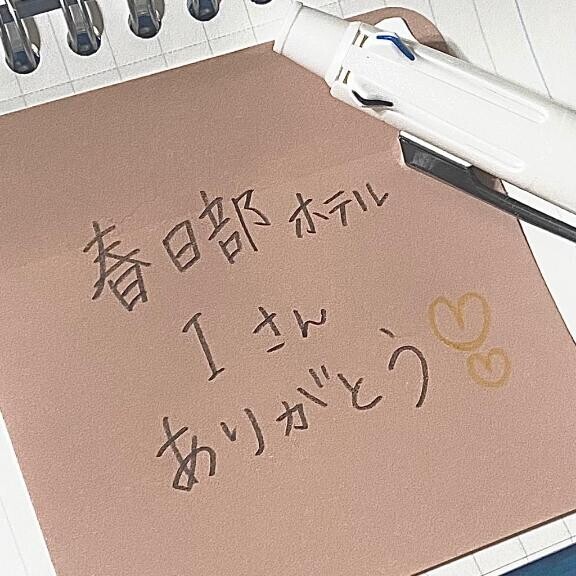 春日部 ホテル
I さん
ありがとう